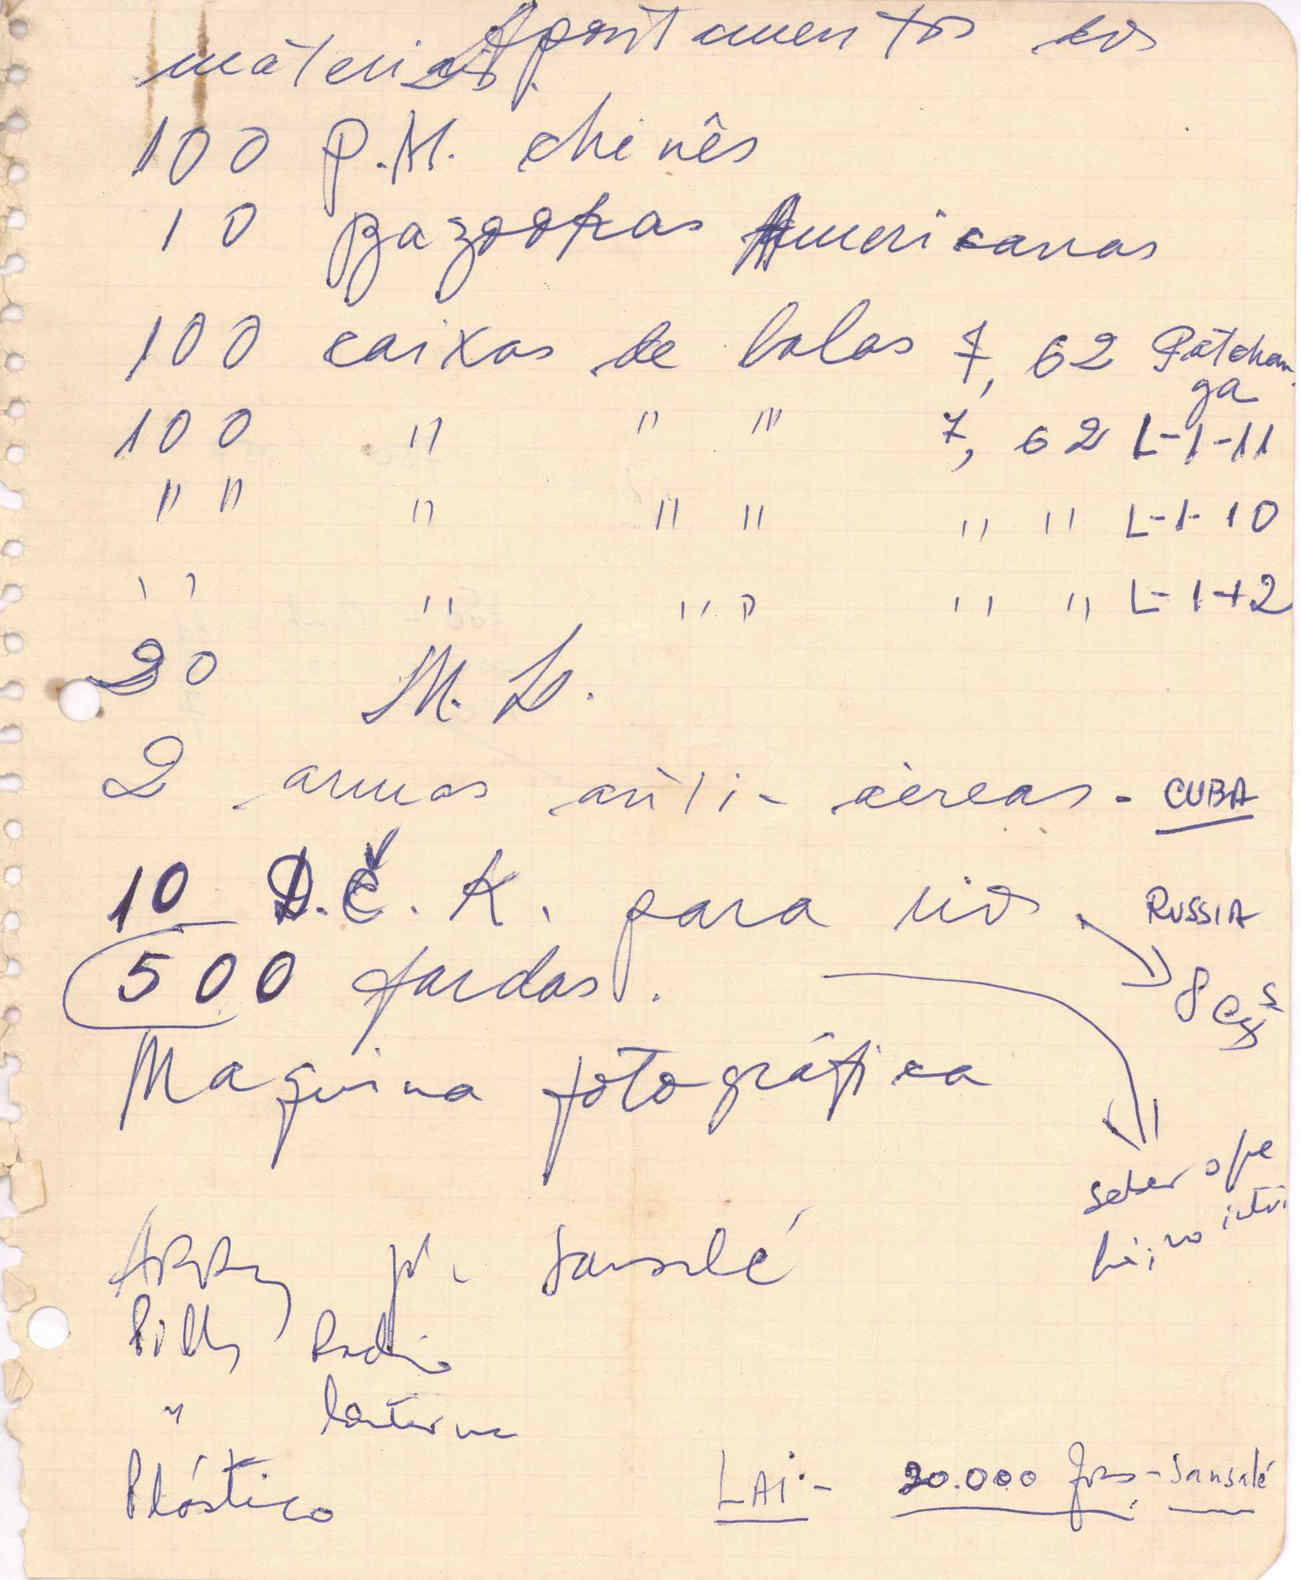 Apontamentos dos
materiais
100 P.M. chinês
10 Bazookas Americanas
100 caixas de balas 7,62 Patchan-
ga
100 " " " 7,62 L-1-11
" " " " " " " L-1-10
" " " " " " " L-1-12
20 M. L.
2 armas anti-aéreas - CUBA
10 D.C.K. para rios. RUSSIA
500 fardas. 8
Maquina fotográfica
saber o
há, no
p. Sansalé
Pilhas Radio
" lanterna
Plástico
LAI - 20.000 frs - Sansalé